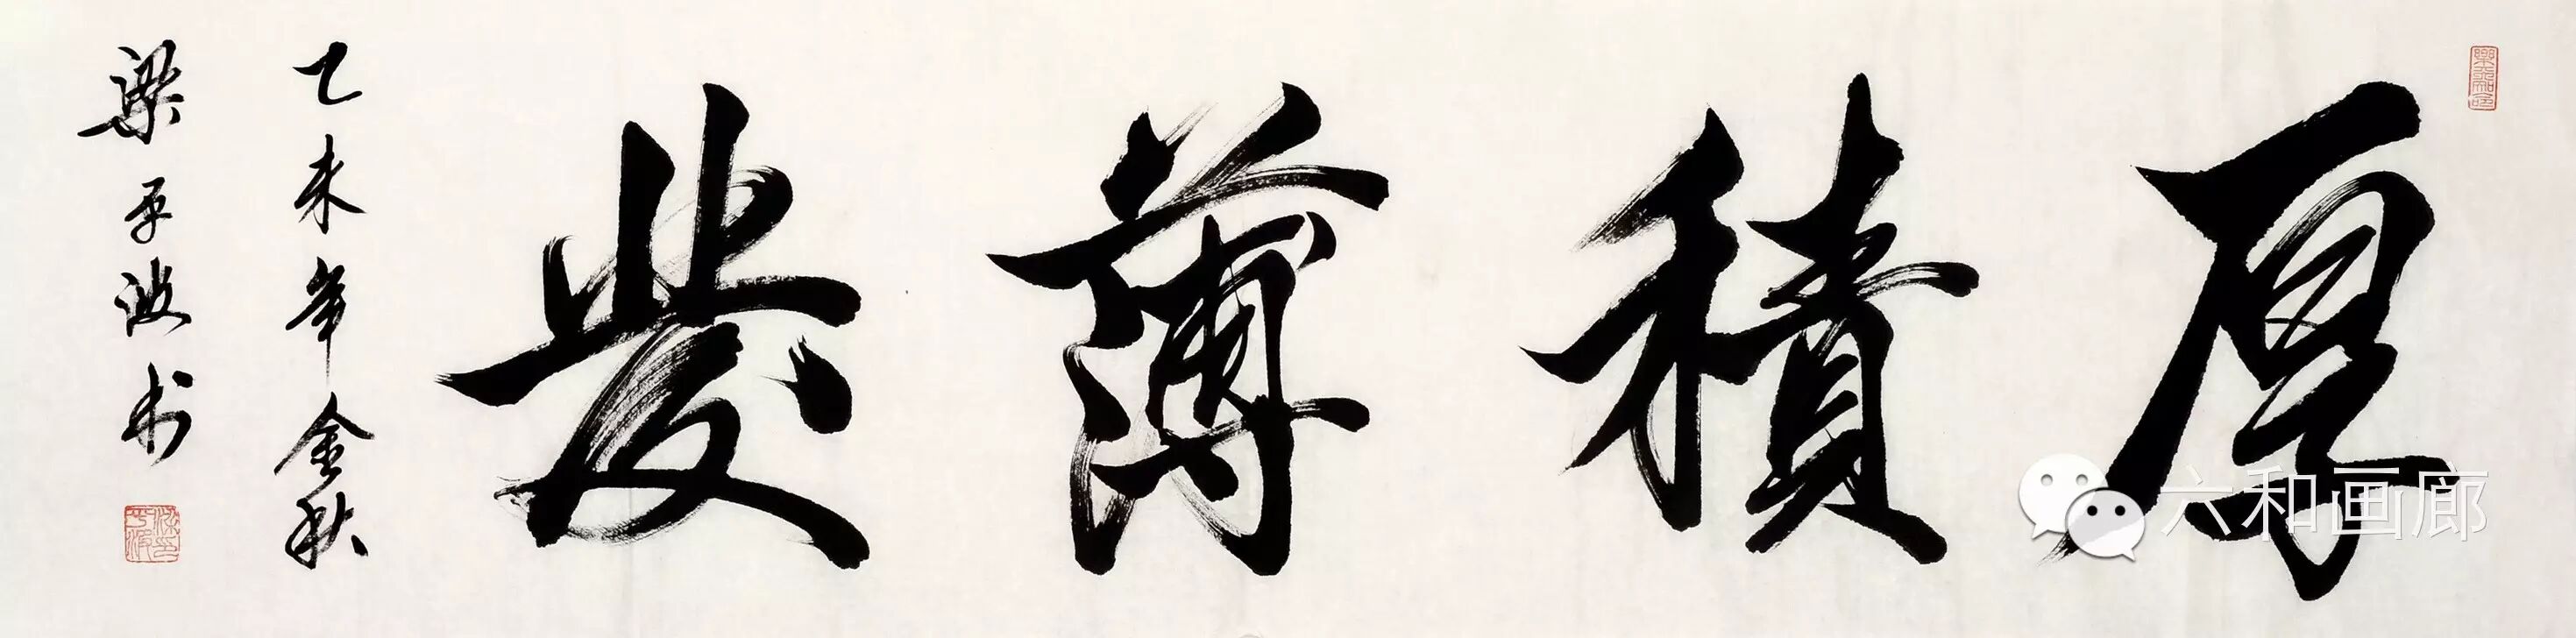 厚積薄發
乙未年金秋
梁平波书
六和画廊